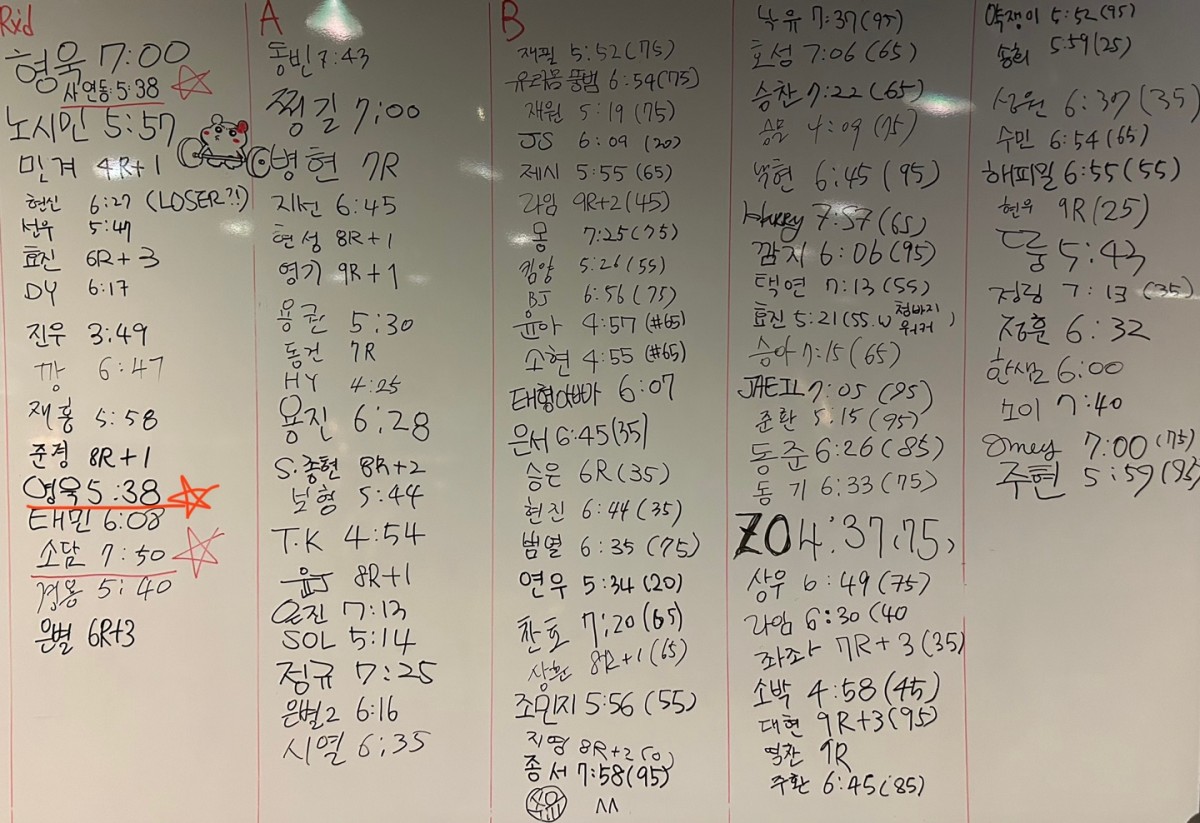 Rxd
형욱 7:00
사연동 5:38
노시민 5:57
민겨 4R+1
현신 6:27 (LOSER?!)
선우 5:47
효진 6R+3
DY 6:17
진우 3:49
깡 6:47
재홍 5:58
준경 8R+1
영욱 5:38
태민 6:08
소담 7:50
경용 5:40
은별 6R+3
A
동빈 7:43
찡길 7:00
병현 7R
지선 6:45
현성 8R+1
영기 9R+1
용권 5:30
동건 7R
HY 4:25
용진 6:28
S.종현 8R+2
보형 5:44
T.K 4:54
윤J 8R+1
은진 7:13
SOL 5:14
정규 7:25
은별2 6:16
시열 6:35
B
재필 5:52(75)
6:54(75)
재원 5:19(75)
JS 6:09 (20)
제시 5:55 (65)
라임 9R+2(45)
몽 7:25(75)
킴양 5:26(55)
BJ 6:56(75)
윤아 4:57(#65)
소현 4:55 (#65)
태형아빠 6:07
은서 6:45(35)
승은 6R(35)
현진 6:44(35)
범열 6:35 (75)
연우 5:34(20)
찬호 7:20(65)
상환 8R+1(65)
조민지 5:56 (55)
지영 8R+2
종서 7:58(95)
^^
낙유 7:37(95)
호성 7:06(65)
승찬 7:22(65)
승문 4:09 (75)
박현 6:45(95)
Harry 7:57(65)
깜지 6:06(95)
택연 7:13(55)
효진 5:21(55.w 청바지 워커)
승아 7:15(65)
JAEIL 7:05 (95)
준환 5:15(95)
동준 6:26(85)
동기 6:33(75)
ZO 4:37(75)
상우 6:49(75)
라임 6:30(40
좌좌 7R+3(35)
소박 4:58(45)
대현 9R+3(95)
열찬 9R
주환 6:45(85)
약쟁이 5:52(95)
송희 5:59(25)
상원 6:37(35)
수민 6:54(65)
해피밀 6:55(55)
현우 9R(25)
둥 5:43
정링 7:13 (35)
정훈 6:32
한샘 6:00
노이 7:40
Omey 7:00(75)
주현 5:59(95)